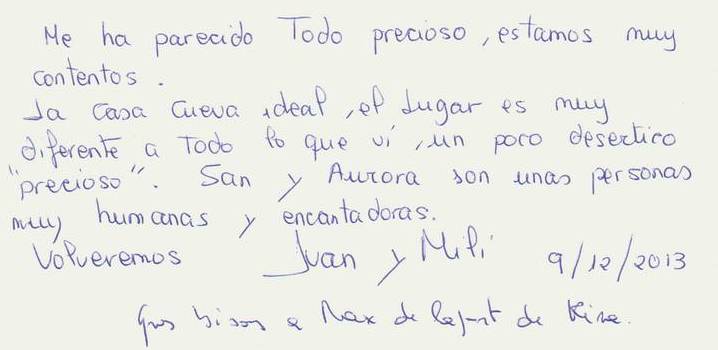 Me ha parecido Todo precioso, estamos muy
contentos.
La Casa Cueva ideal, el Lugar es muy
diferente a Todo lo que vi, un poco desertico
"precioso". San y Aurora son unas personas
muy humanas y encantadoras.
Volveremos Juan y Mili 9/12/2013
Gros bisous a Max de la part de